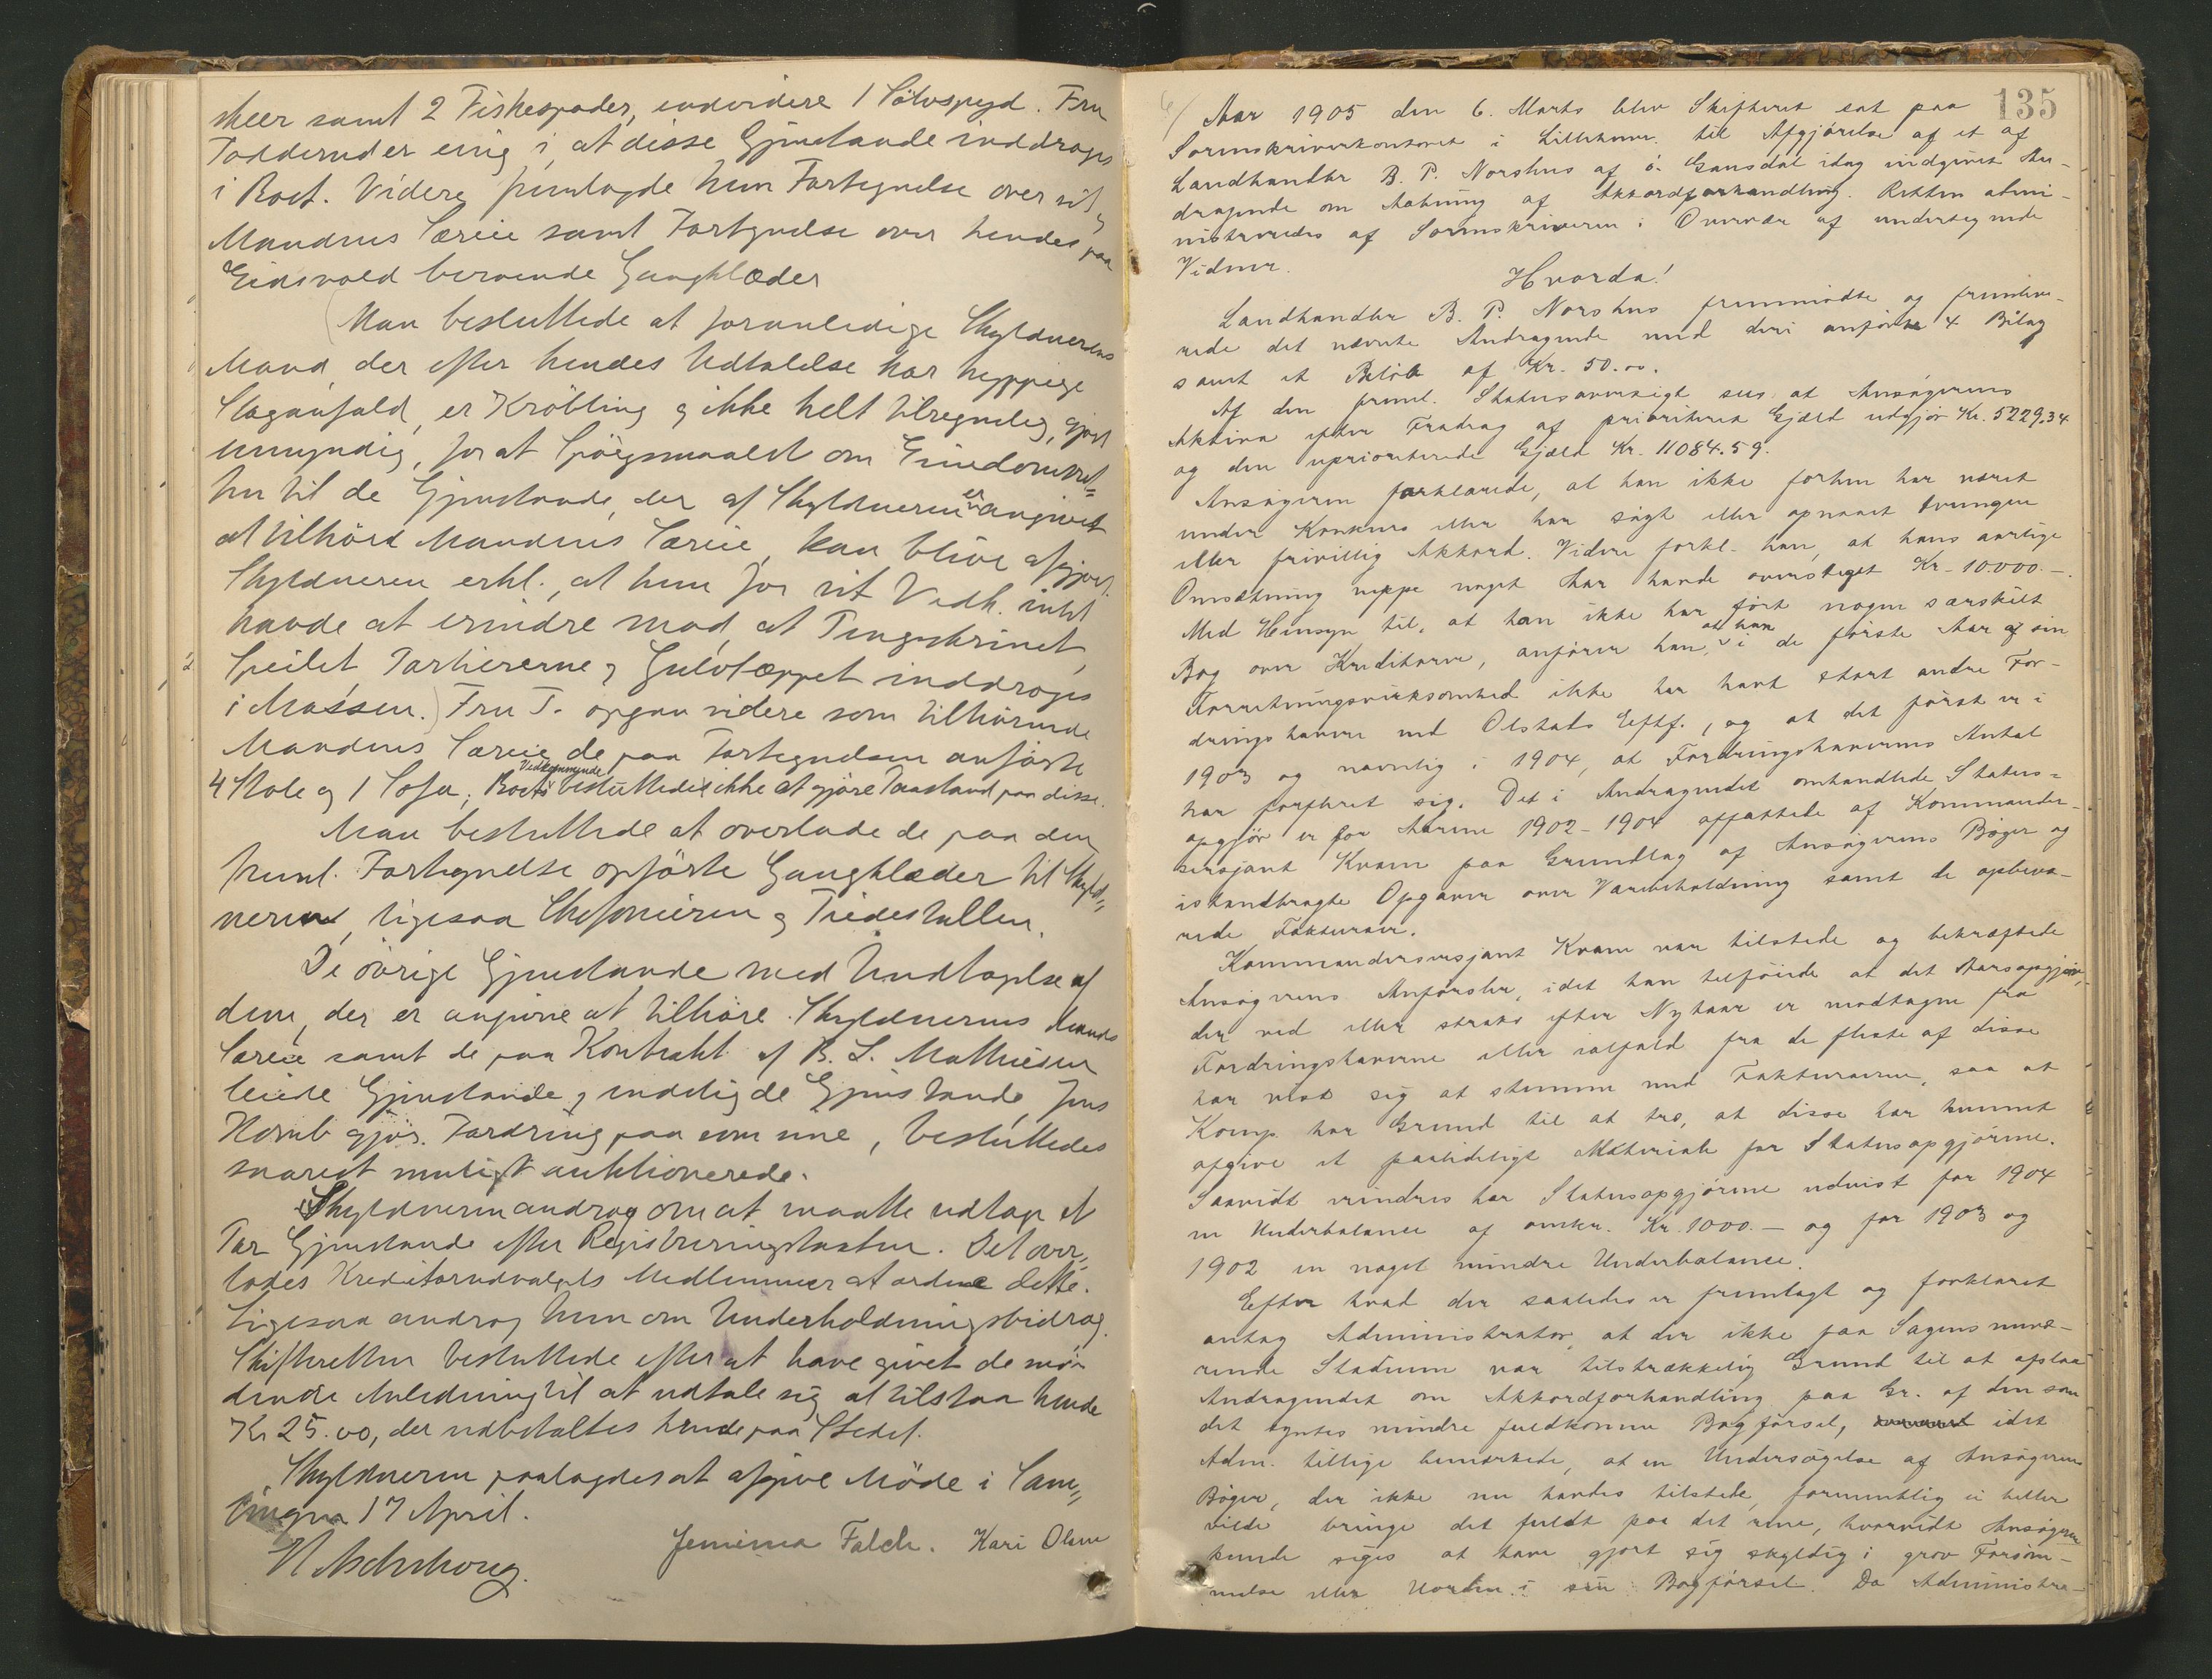 skeer samt 2 Fiskespader, endvidere 1 Sölvspyd. Fru
Todderud er enig i at disse Gjenstande inddrages
i Boet. Videre fremlagde hun Fortegnelse over sit og
Mandens Særeie samt Fortegnelse over hendes paa
Eidsvold beroende Gangklæder
Man besluttede at foranledige Skyldnerens
Mand, der efter hendes Udtalelse har hyppige
Slaganfald, er Kröbling og ikke helt tilregnelig, gjort
umyndig, for at Spörgsmaalet om Eiendomsret-
ten til de Gjenstande, der af Skyldneren er angivet
at tilhöre Mandens Særeie, kan blive afgjort.
Skyldneren erkl., at hun for sit Vedk. intet
havde at erindre mod, at Pengeskrinet,
Speilet, Portiererne og Gulvtæppet inddroges
i Massen.) Fru T. opgav videre som tilhörende
Mandens Særeie de paa Fortegnelsen anförte
4 Stole og 1 Sofa; Boets Vedkommende besluttedes ikke at gjöre Paastand paa disse.
Man besluttede at overlade de paa den
freml. Fortegnelse opförte Gangklæder til Skyld-
neren, ligesaa Chefonieren og Piedestallen.
De övrige Gjenstande med Undtagelse af
dem, der er angivne at tilhöre Skyldnerens Mands
Særeie samt de paa Kontrakt af B. L. Mathiesen
leiede Gjenstande og endelig de Gjenstande, Jens
gjör Fordring paa som sine, besluttedes
snarest muligst auktionerede.
Skyldneren androg om at maatte udtage et
Par Gjenstande efter Registreringstaksten. Det over-
lodes Kreditorudvalgets Medlemmer at ordne dette.
Ligesaa androg hun om Underholdningsbidrag.
Skifteretten besluttede efter at have givet de mö-
dende Anledning til at udtale sig at tilstaa hende
Kr 25.00, der udbetaltes hende paa Stedet.
Skyldneren paalagdes at afgive Möde i Sam-
lingen 17 April.
Jemima Falch. Kari Olsen
135
6/ Aar 1905 den 6. Marts blev Skifteret sat paa
Sorenskriverkontoret i Lillehmr. til Afgjörelse af et af
Landhandler B. P. Norshus af ö. Gausdal idag indgivet An-
dragende om Aabning af Akkordforhandling. Retten admi-
nistreredes af Sorenskriveren i Overvær af undertegnede
Vidner.
Hvorda!
Landhandler B. P. Norshus fremmödte og fremleve-
rede det nævnte Andragende med deri anförte 4 Bilag
samt et Belöb af Kr. 50.00.
Af den freml. Statusoversigt sees at Ansögerens
Aktiva efter Fradrag af prioriteret Gjæld udgjör Kr. 5229.34
og den uprioriterede Gjæld Kr. 11084.59.
Ansögeren forklarede, at han ikke forhen har været
under Konkurs eller har sögt eller opnaaet tvungen
eller frivillig Akkord. Videre forkl. han, at hans aarlige
Omsætning neppe noget Aar havde oversteget Kr. 10.000.-.
Med Hensyn til, at han ikke har fört nogen særskilt
Bog over Kreditorer, anförer han, at han i de förste Aar af sin
Forretningsvirksomhed ikke har havt stort andre For-
dringshavere end Olstads Eeftf., og at det först er i
1903 og navnlig i 1904, at Fordringshavernes Antal
har foröget sig. Det i Andragendet omhandlede Status-
opgjör er for Aarene 1902-1904 affattede af Kommander-
sersjant Kvam paa Grundlag af Ansögerens Böger og
istandbragte Opgaver over Varebeholdning samt de opbeva-
rede Fakturaer.
Kommandersersjant Kvam var tilstede og bekræftede
Ansögerens Anförsler, idet han tilföiede at det Aarsopgjör,
der ved eller straks efter Nytaar er modtagne fra
Fordringshaverne eller ialfald fra de fleste af disse
har vist sig at stemme med Fakturaerne, saa at
Komp. har Grund til at tro, at disse har kunnet
afgive et paalideligt Materiale for Statusopgjörene.
Saavidt erindres har Statusopgjörene udvist for 1904
en Underbalance af omkr. Kr. 1000.- og for 1903 og
1902 en noget mindre Underbalance.
Efter hvad der saaledes er fremlagt og forklaret
antog Administrator, at der ikke paa Sagens nuvæ-
rende Stadium var tilstrækkelig Grund til at afslaa
Andragendet om Akkordforhandling paa Gr. af den som
det syntes mindre fuldkomne Bogförsel, idet
Adm. tillige bemærkede, at en Undersögelse af Ansögerens
Böger, der ikke nu havdes tilstede, formentlig ei heller
vilde bringe det fuldt paa det rene, hvorvidt Ansögeren
kunde siges at have gjort sig skyldig i grov Forsöm-
melse eller Uorden i sin Bogförsel. Da Administra-